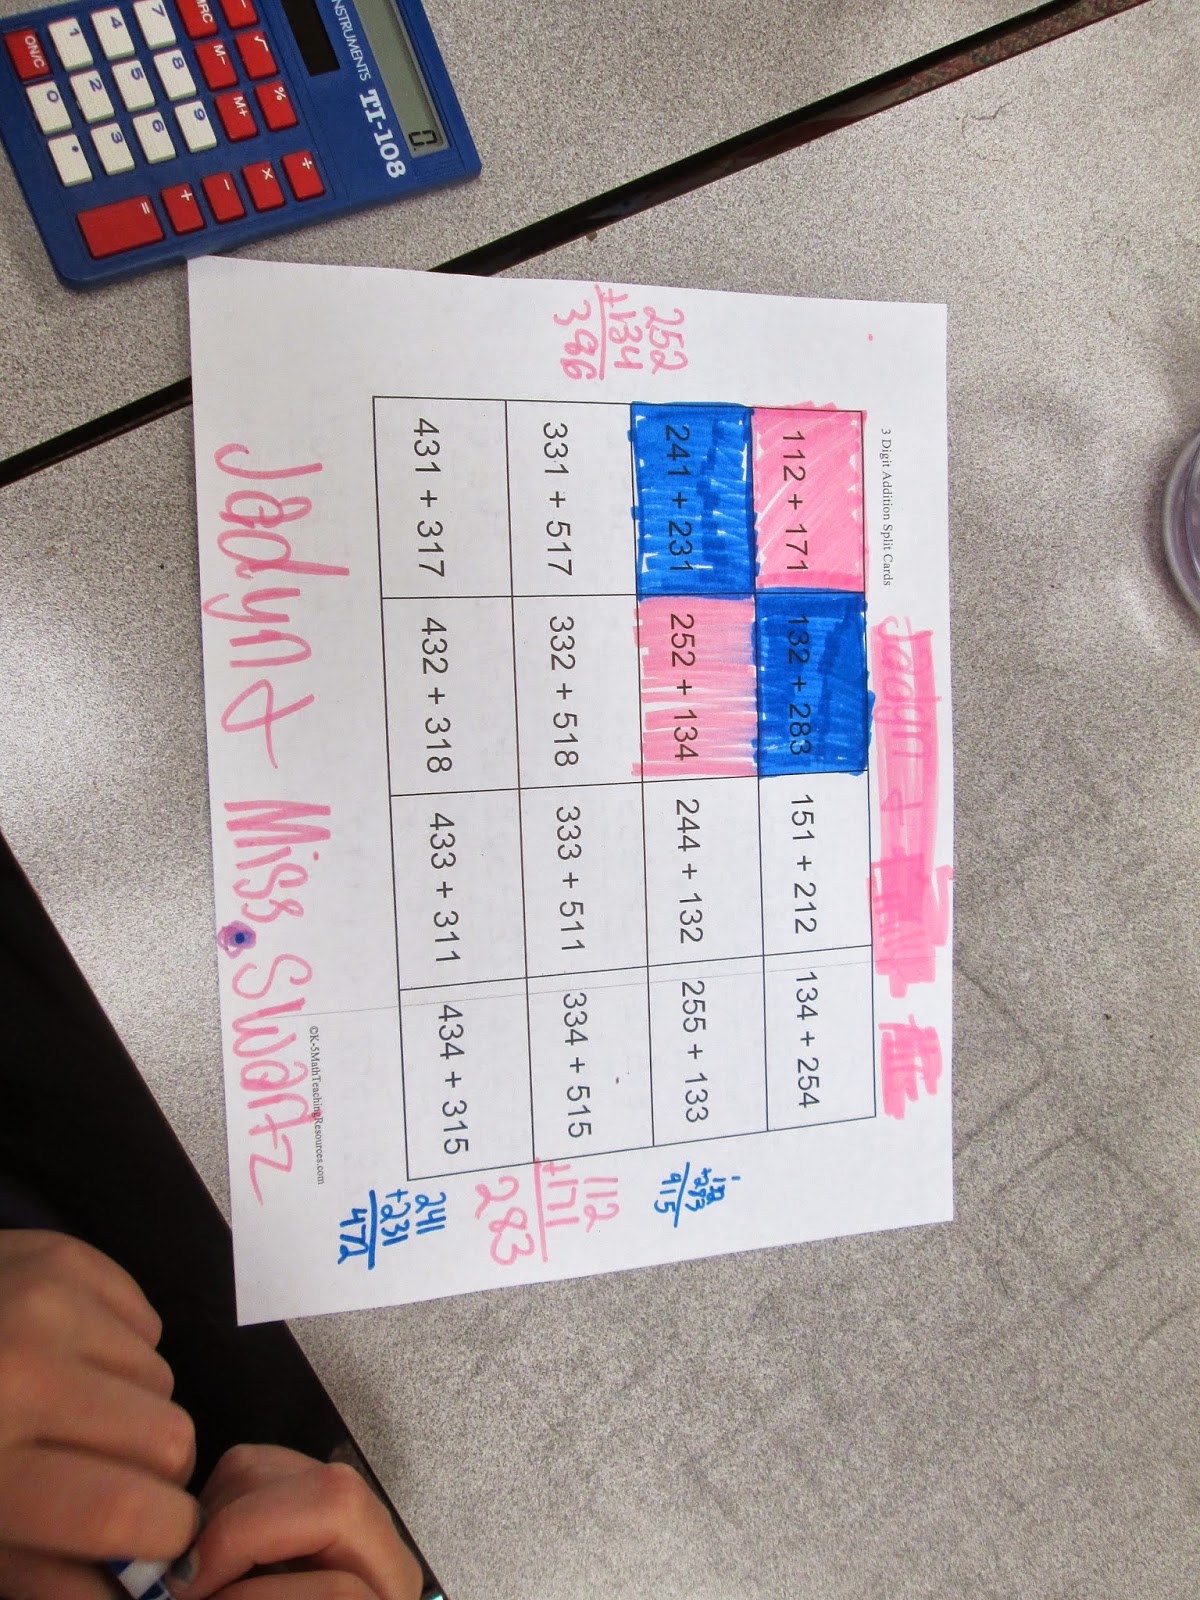 3 Digit Addition Split Cards
Jadyn &
112 + 171 132 + 283 151 + 212 134 + 254
241 + 231 252 + 134 244 + 132 255 + 133
331 + 517 332 + 518 333 + 511 334 + 515
431 + 317 432 + 318 433 + 311 434 + 315
©K-5MathTeachingResources.com
Jadyn & Miss. Swartz
252
+134
386
1
132
+283
415
112
+171
283
241
+231
472
INSTRUMENTS
TI-108
0.
MRC M- M+
√ %
÷ × − + =
7 8 9
4 5 6
1 2 3
ON/C 0 .